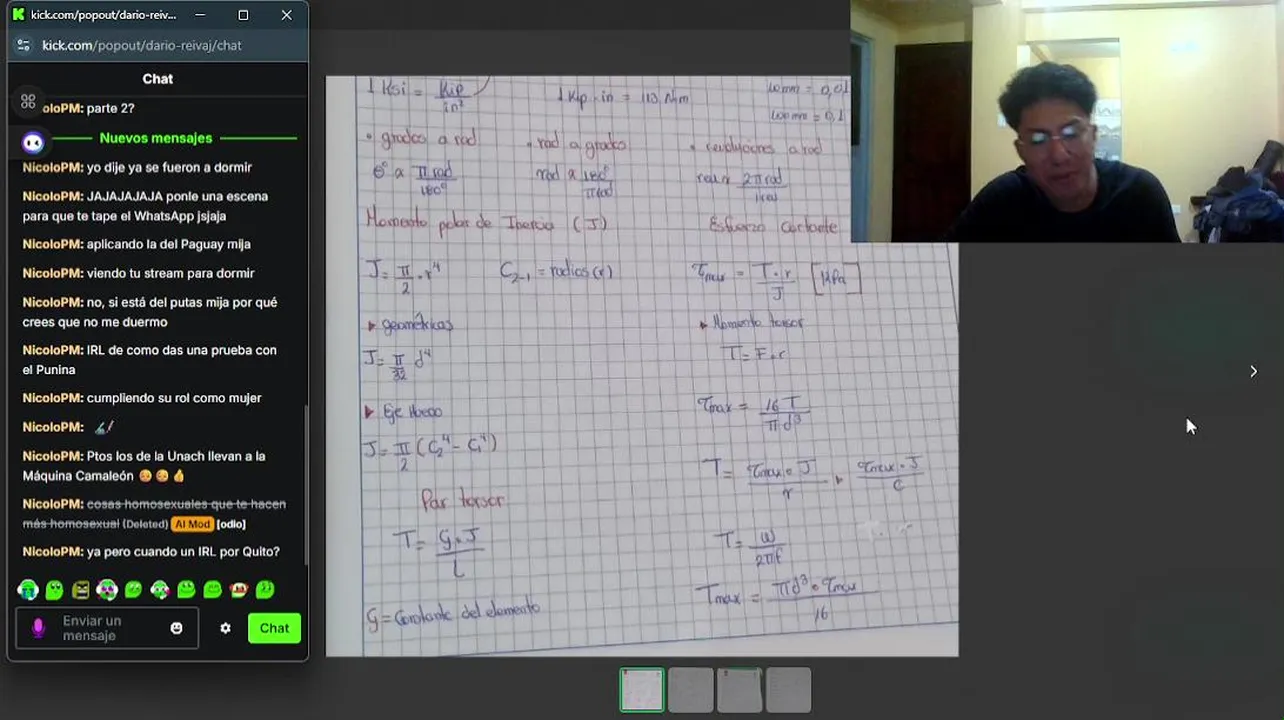 kick.com/popout/dario-reiv...
kick.com/popout/dario-reivaj/chat
Chat
oloPM: parte 2?
Nuevos mensajes
NicoloPM: yo dije ya se fueron a dormir
NicoloPM: JAJAJAJAJA ponle una escena
para que te tape el WhatsApp jsjaja
NicoloPM: aplicando la del Paguay mija
NicoloPM: viendo tu stream para dormir
NicoloPM: no, si está del putas mija por qué
crees que no me duermo
NicoloPM: IRL de como das una prueba con
el Punina
NicoloPM: cumpliendo su rol como mujer
NicoloPM:
NicoloPM: Ptos los de la Unach llevan a la
Máquina Camaleón
NicoloPM: cosas homosexuales que te hacen
más homosexual (Deleted) AI Mod [odio]
NicoloPM: ya pero cuando un IRL por Quito?
Enviar un
mensaje
Chat
1 Ksi = Kip/in²
1 Kip·in = 113 Nm
= 0,01
= 0,1
• grados a rad
• rad a grados
• revoluciones a rad
θ° x π rad/180°
rad x 180°/π rad
rev x 2π rad/1 rev
Momento polar de Inercia (J)
Esfuerzo Cortante
J = π/2 · r⁴
C₂₋₁ = radios (r)
τmax = T·r/J [kPa]
▸ geométricas
▸ Momento torsor
J = π/32 d⁴
T = F·r
▸ Eje Hueco
τmax = 16 T/πd³
J = π/2 (C₂⁴ - C₁⁴)
T = τmax · J/r ▸ τmax · J/c
Par torsor
T = G·J/L
T = ω/2πf
G = Constante del elemento
Tmax = πd³ · τmax/16